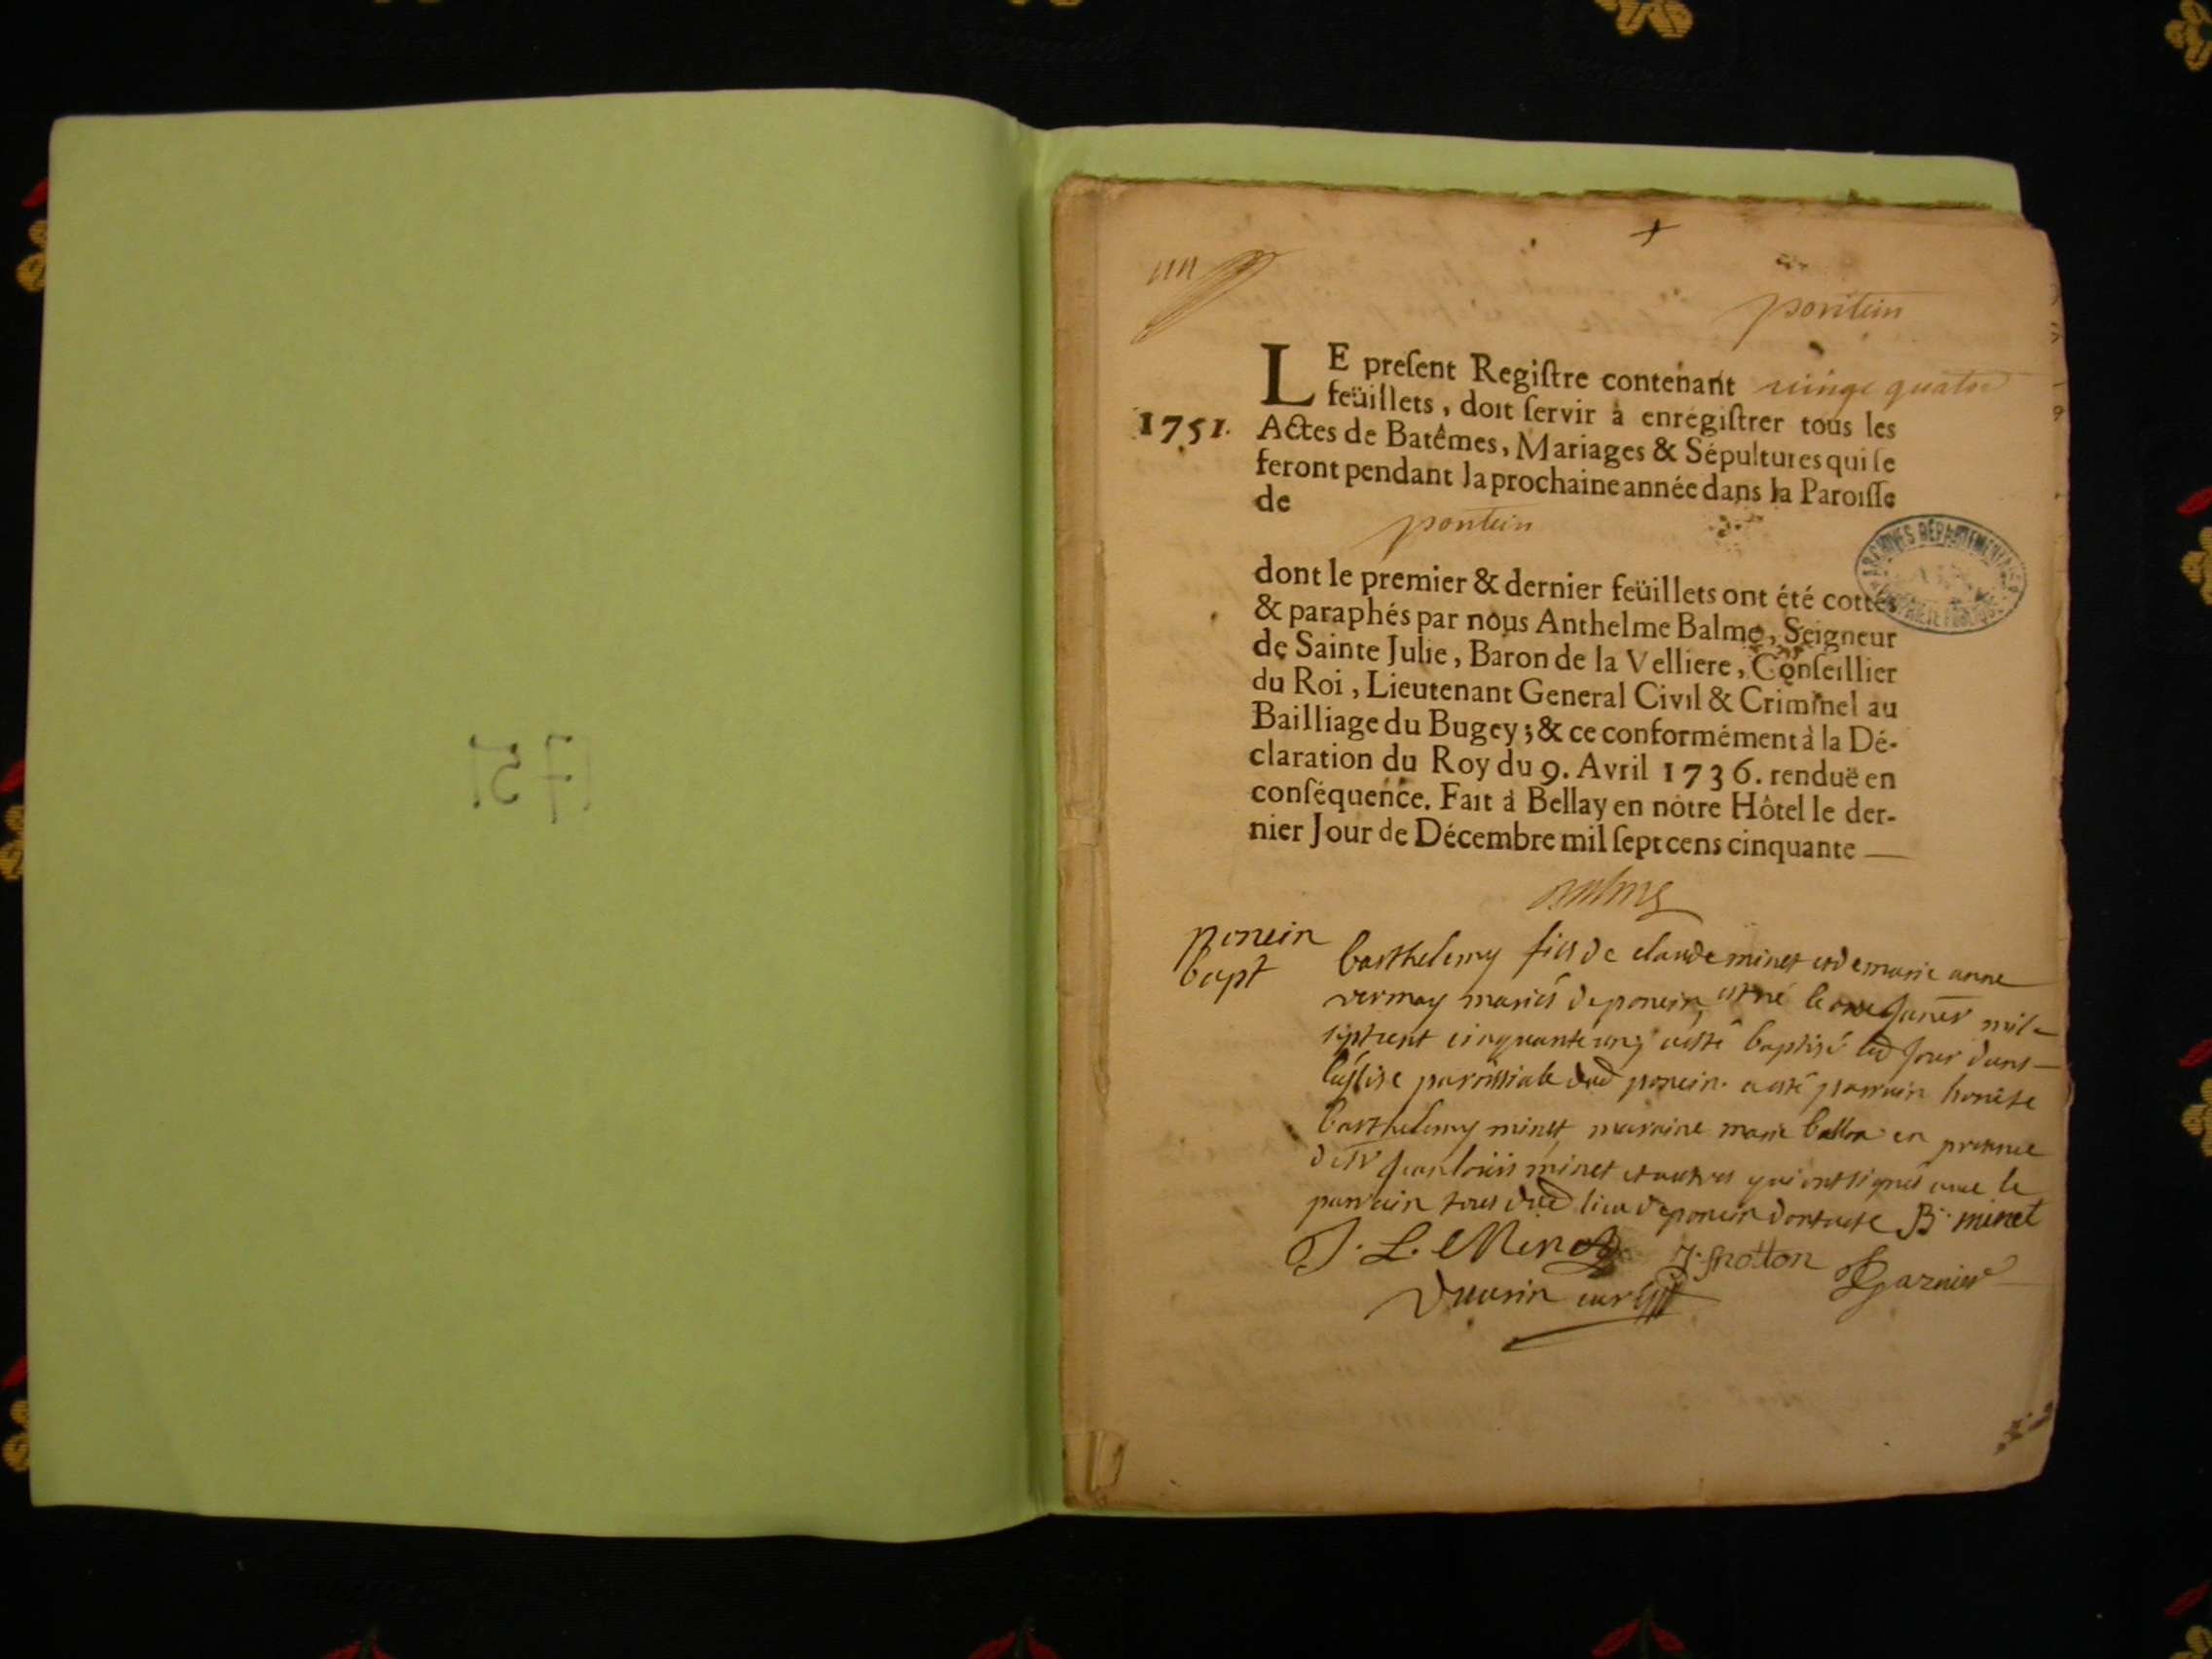 1751
pontein
LE preſent Regiſtre contenant vingt quatre
feüillets, doit ſervir à enrégiſtrer tous les
1751. Actes de Batêmes, Mariages & Sépultures qui ſe
feront pendant la prochaine année dans la Paroiſſe
de
pontein
dont le premier & dernier feüillets ont été cottés
& paraphés par nous Anthelme Balme, Seigneur
de Sainte Julie, Baron de la Velliere, Conſeillier
du Roi, Lieutenant General Civil & Criminel au
Bailliage du Bugey; & ce conformément à la Dé-
claration du Roy du 9. Avril 1736. renduë en
conſéquence. Fait à Bellay en nôtre Hôtel le der-
nier Jour de Décembre mil ſept cens cinquante
ARCHIVES DÉPARTEMENTALES
Balme
poncin
bapt
barthelemy fils de claude minet et de marie anne
vermay mariés de poncin, est né le janer mil
sept cent cinquante un, a esté baptisé led jour dans
l'église paroissiale dud poncin. a esté parrain honete
barthelemy minet maraine marie en presence
de sr jean loüis minet et autres qui ont signés avec le
parrain tous dud lieu de poncin dont acte B. minet
J. L. Minet J. frotton garnier
curé